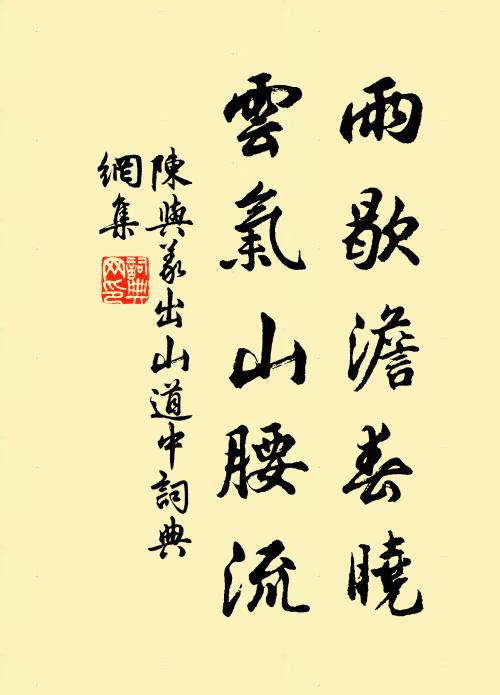 雨歇澹春曉
雲氣山腰流
陳與義出山道中詞典
網集
詞典網印